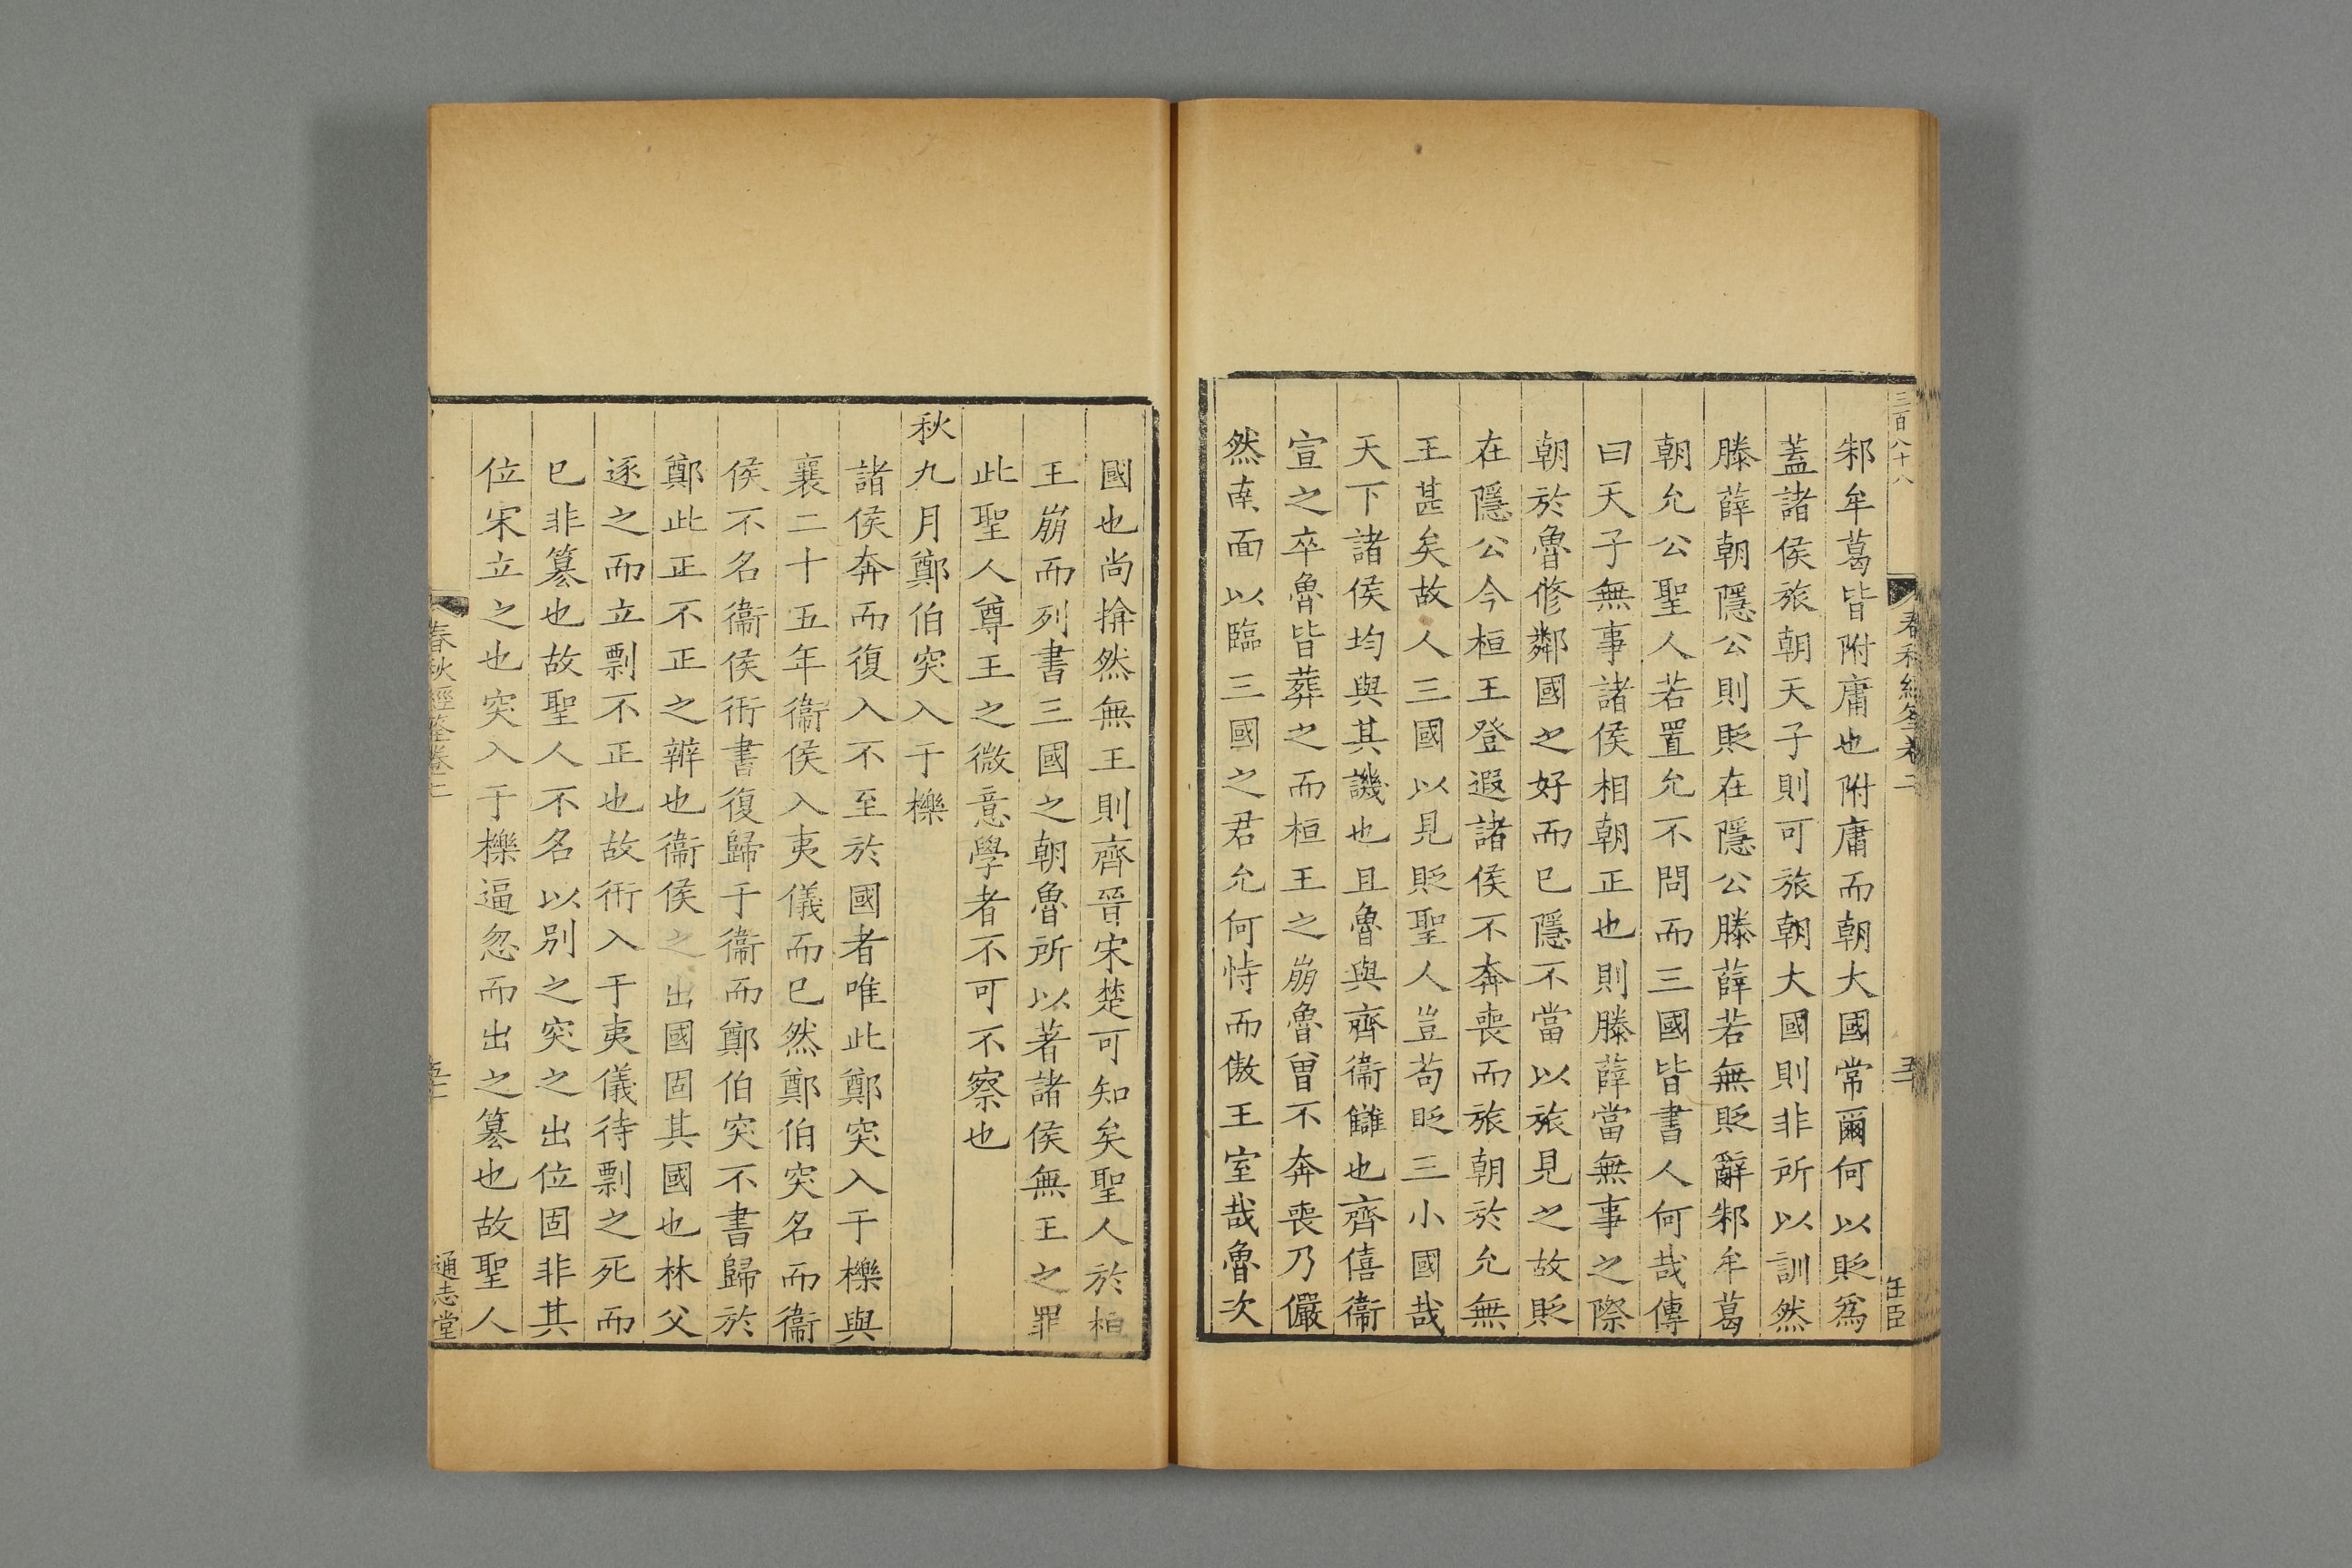 三百八十八
邾牟葛皆附庸也附庸而朝大國常爾何以貶爲
蓋諸侯旅朝天子則可旅朝大國則非所以訓然
滕薛朝隱公則貶在隱公滕薛若無貶辭邾牟葛
朝允公聖人若置允不問而三國皆書人何哉傳
曰天子無事諸侯相朝正也則滕薛當無事之際
朝於魯修鄰國之好而已隱不當以旅見之故貶
在隱公今桓王登遐諸侯不奔喪而旅朝於允無
王甚矣故人三國以見貶聖人豈苟貶三小國哉
天下諸侯均與其譏也且魯與齊衞讎也齊僖衞
宣之卒魯皆葬之而桓王之崩魯曾不奔喪乃儼
然南面以臨三國之君允何恃而傲王室哉魯次
國也尚揜然無王則齊晉宋楚可知矣聖人於桓
王崩而列書三國之朝魯所以著諸侯無王之罪
此聖人尊王之微意學者不可不察也
秋九月鄭伯突入于櫟
諸侯奔而復入不至於國者唯此鄭突入于櫟與
襄二十五年衞侯入夷儀而已然鄭伯突名而衞
侯不名衞侯衎書復歸于衞而鄭伯突不書歸於
鄭此正不正之辨也衞侯之出國固其國也林父
逐之而立剽不正也故衎入于夷儀待剽之死而
已非篡也故聖人不名以別之突之出位固非其
位宋立之也突入于櫟逼忽而出之篡也故聖人
春秋經筌卷二
通志堂